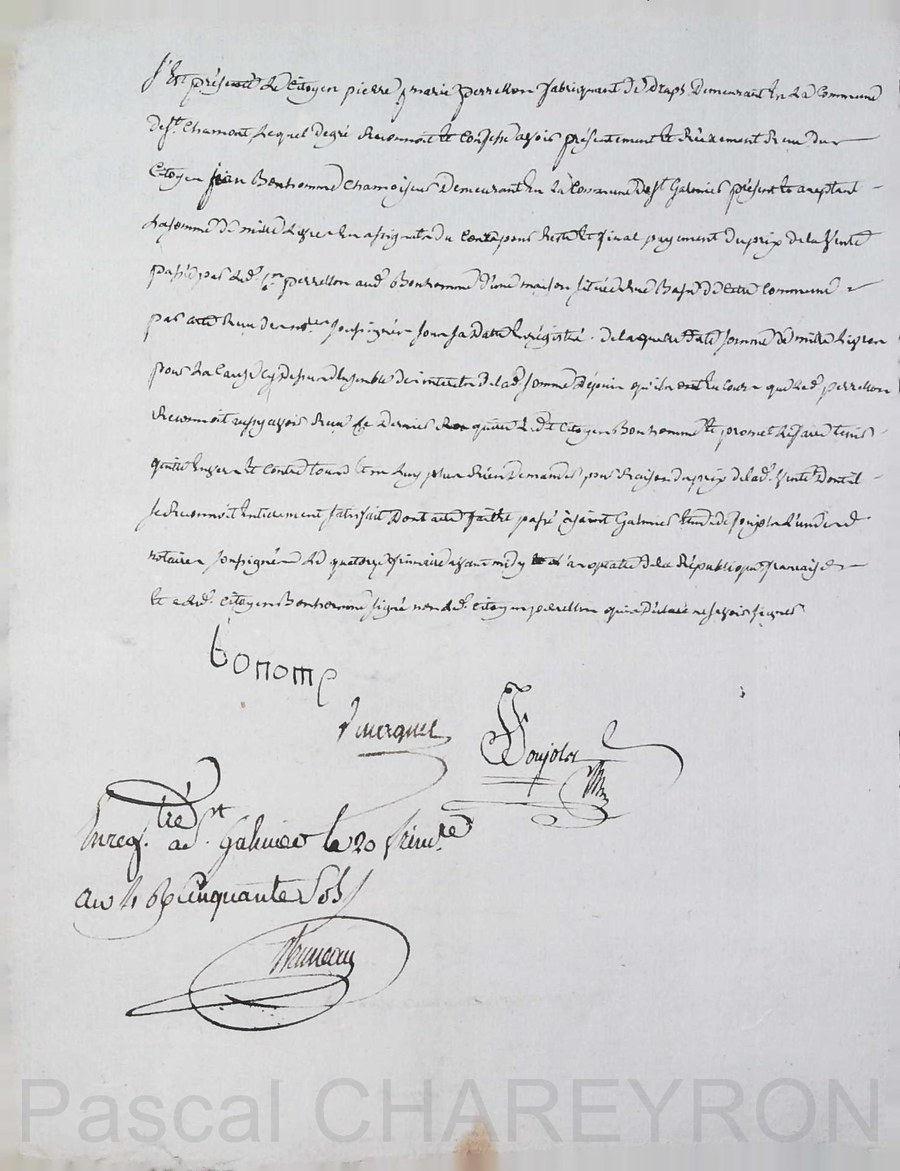 S'est présenté le Citoyen pierre marie perrellon fabriquant de draps Demeurant En La Commune
de st. Chamont, Lequel de gré Reconnoit et Confesse avoir présentement et Réellement Reçu du
Citoyen jean Bonhomme Chamoiseur Demeurant En La Commune de st Galmier présent et aceptant
La somme de mille Livres En assignats du Conté pour Reste et final payement du prix de la Vente
passée par led. Cen perrellon aud. Bonhomme d'une maison située Rue Basse de Cette Commune
par acte Reçu de notre soussigné sous sa Datte Enrégistré. de laquelle dite somme de mille Livres
pour La Cause cy dessus Ensemble des interets de lad. somme Depuis qu'ils ont En Cours que led. perrellon
Reconnoit aussy avoir Reçus Ce dernier quitte Ledit Citoyen Bonhomme et promet Le faire tenir
quitte Envers et Contre tous et ne Luy plus Rien Demander pour Raison du prix de lad. Vente Dont il
se Reconnoit Entierement satisfait Dont acte fait et passé à saint Galmier Etude de soujols L'un des
notaires soussignés Le quatorze frimaire avant midy l'an quatre de la République française
Et a led. Citoyen Bonhomme signé non led. Citoyen perrellon qui a Déclaré ne savoir signer
bonome
Soujols
Enregtré. a St. Galmier le 20 frimre
an 4 Cinquante Sols
Bruneau
Pascal CHAREYRON